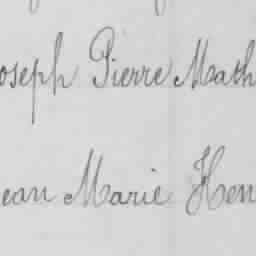 oseph Pierre Math
ean Marie Hen